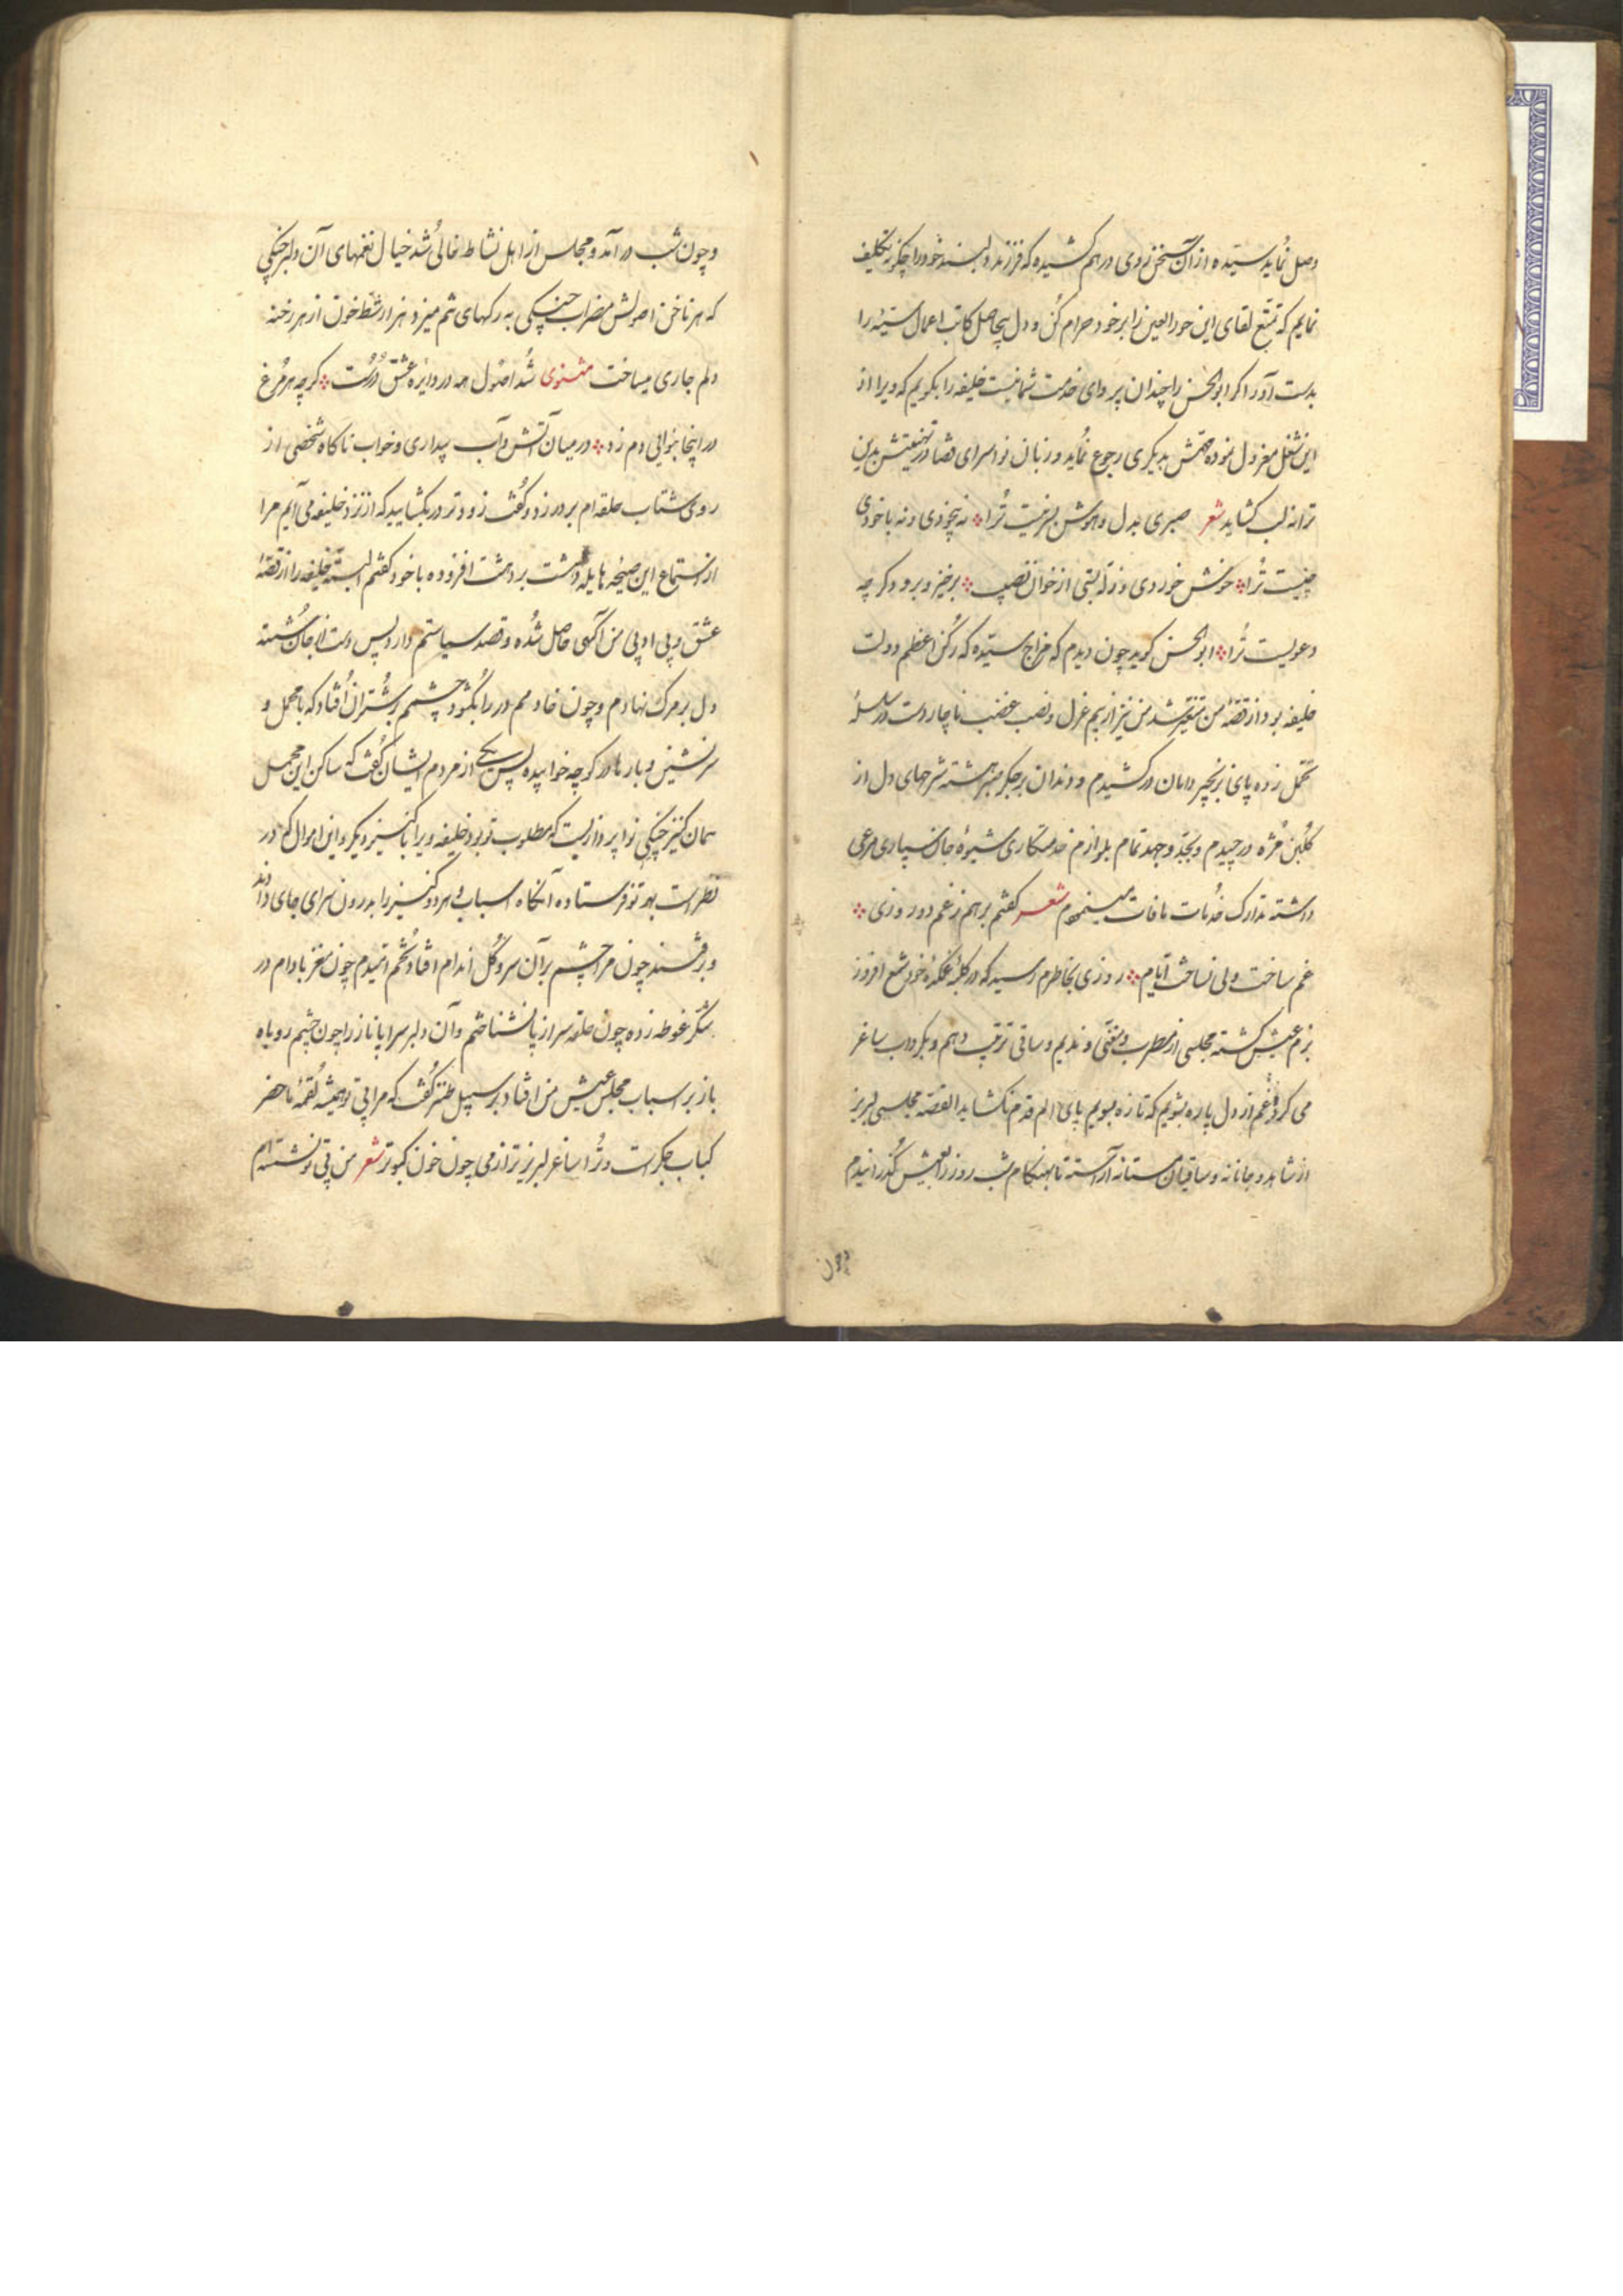 وصل نماید ستیده ازان سخن روی درهم کشیده که فرزند دلبند خود را چگونه تکلیف
نمایم که تمتع لقای این حورالعین را بر خود حرام کن و دل بیحاصل کاتب اعمال سیئه را
بدست آور اگر ابوالحسن را چندان پروای خدمت شما نیست خلیفه را بگویم که ویرا از
این شغل معزول نموده مهمش بدیگری رجوع نماید و زبان نواسرای قضا در تهنیتش بدین
ترانه لب کشاید شعر صبری بدل و هوش بسر نیست ترا نه بیخودی و نه باخودی
چیست ترا خونش خوردی و زله بستی از خوان نصیب برخیز و برو دگر چه
دعویست ترا ابوالحسن گوید چون دیدم که مزاج ستیده که رکن اعظم دولت
خلیفه بود از قصهٔ من متغیر شد من نیز از بیم عزل و نصب غضب ناچار دست در سلسلهٔ
تحمل زده پای بزنجیر دامان درکشیدم و دندان بر جگر صبر هشته شرحهای دل از
گلبن مژه درچیدم و بجد و جهد تمام بلوازم خدمتکاری شیوهٔ جان سپاری مرعی
داشته تدارک خدمات مافات مینمودم شعر گفتم برهم ز غم دو روزی
غم ساخت ولی نساخت ایام روزی بخاطرم رسید که در کلبهٔ غمکدهٔ خود شمع افروز
بزم عیش گشته مجلسی از مطرب و مغنی و ندیم و ساقی ترتیب دهم و بگرداب ساغر
می گرد غم از دل پاره بشویم که تازه بسویم پای الم قدم نکشاید القصه مجلسی لبریز
از شاهد و جانانه و ساقیان مستانه آراسته تا بهنگام شب روز را بعیش گذرانیدم
و چون
و چون شب درآمد و مجلس از اهل نشاط خالی شد خیال نغمهای آن دلبر چنگی
که هر ناخن اصولش مضراب چنگی به رگهای تنم میزد هزار شط خون از هر رخنه
دلم جاری میساخت مثنوی شد اصول همه در دایره عشق درست گرچه هر مرغ
در اینجا بنوایی دم زد در میان آتش و آب بیداری و خواب ناگاه شخصی از
روی شتاب حلقه ام بر در زد و گفت زودتر در بکشایید که از نزد خلیفه می آیم مرا
از استماع این صیحه هایله دهشت بر دهشت افزوده باخود گفتم البته خلیفه را از قصهٔ
عشق و بی ادبی من آگهی حاصل شده و قصد سیاستم دارد پس دست از جان شسته
دل بر مرگ نهادم و چون خادمم در را بگشود چشمم بر شتران افتاد که با محمل و
سرنشین و بارها در کوچه خوابیده پس یکی از مردم ایشان گفت که ساکن این محمل
همان کنیز چنگی نواپردازیست که مطلوب تو بود خلیفه ویرا با کنیز دیگر و این اموال که در
نظر است بهر تو فرستاده آنگاه اسباب و هر دو کنیز را بدرون سرای جای دادند
و برفتند چون مرا چشم بر آن سرو گل اندام افتاد تخم امیدم چون مغز بادام در
شکر غوطه زده چون حلقه سر از پا نشناختم و آن دلبر سراپا ناز را چون چشم روباه
باز بر اسباب مجلس عیش من افتاد بر سبیل طنز گفت که مرا بی تو همیشه لقمهٔ ماحضر
کباب جگر است و ترا ساغر لبریز تر از می چون خون کبوتر شعر من بی تو نشسته ام